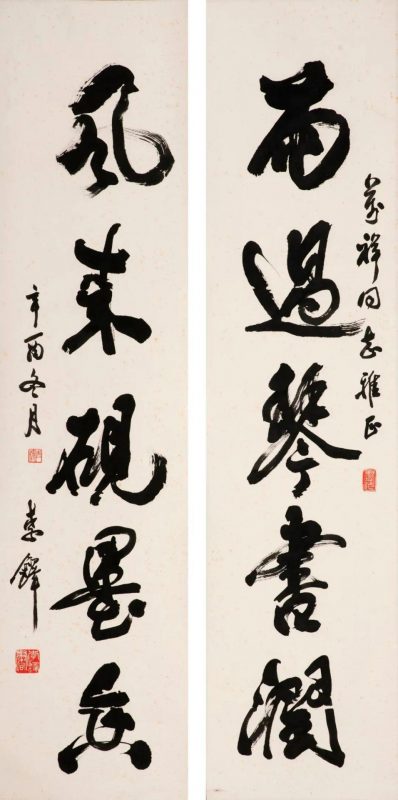 雨過琴書潤
萬祥同志雅正
風來硯墨香
辛酉冬月
李鐸